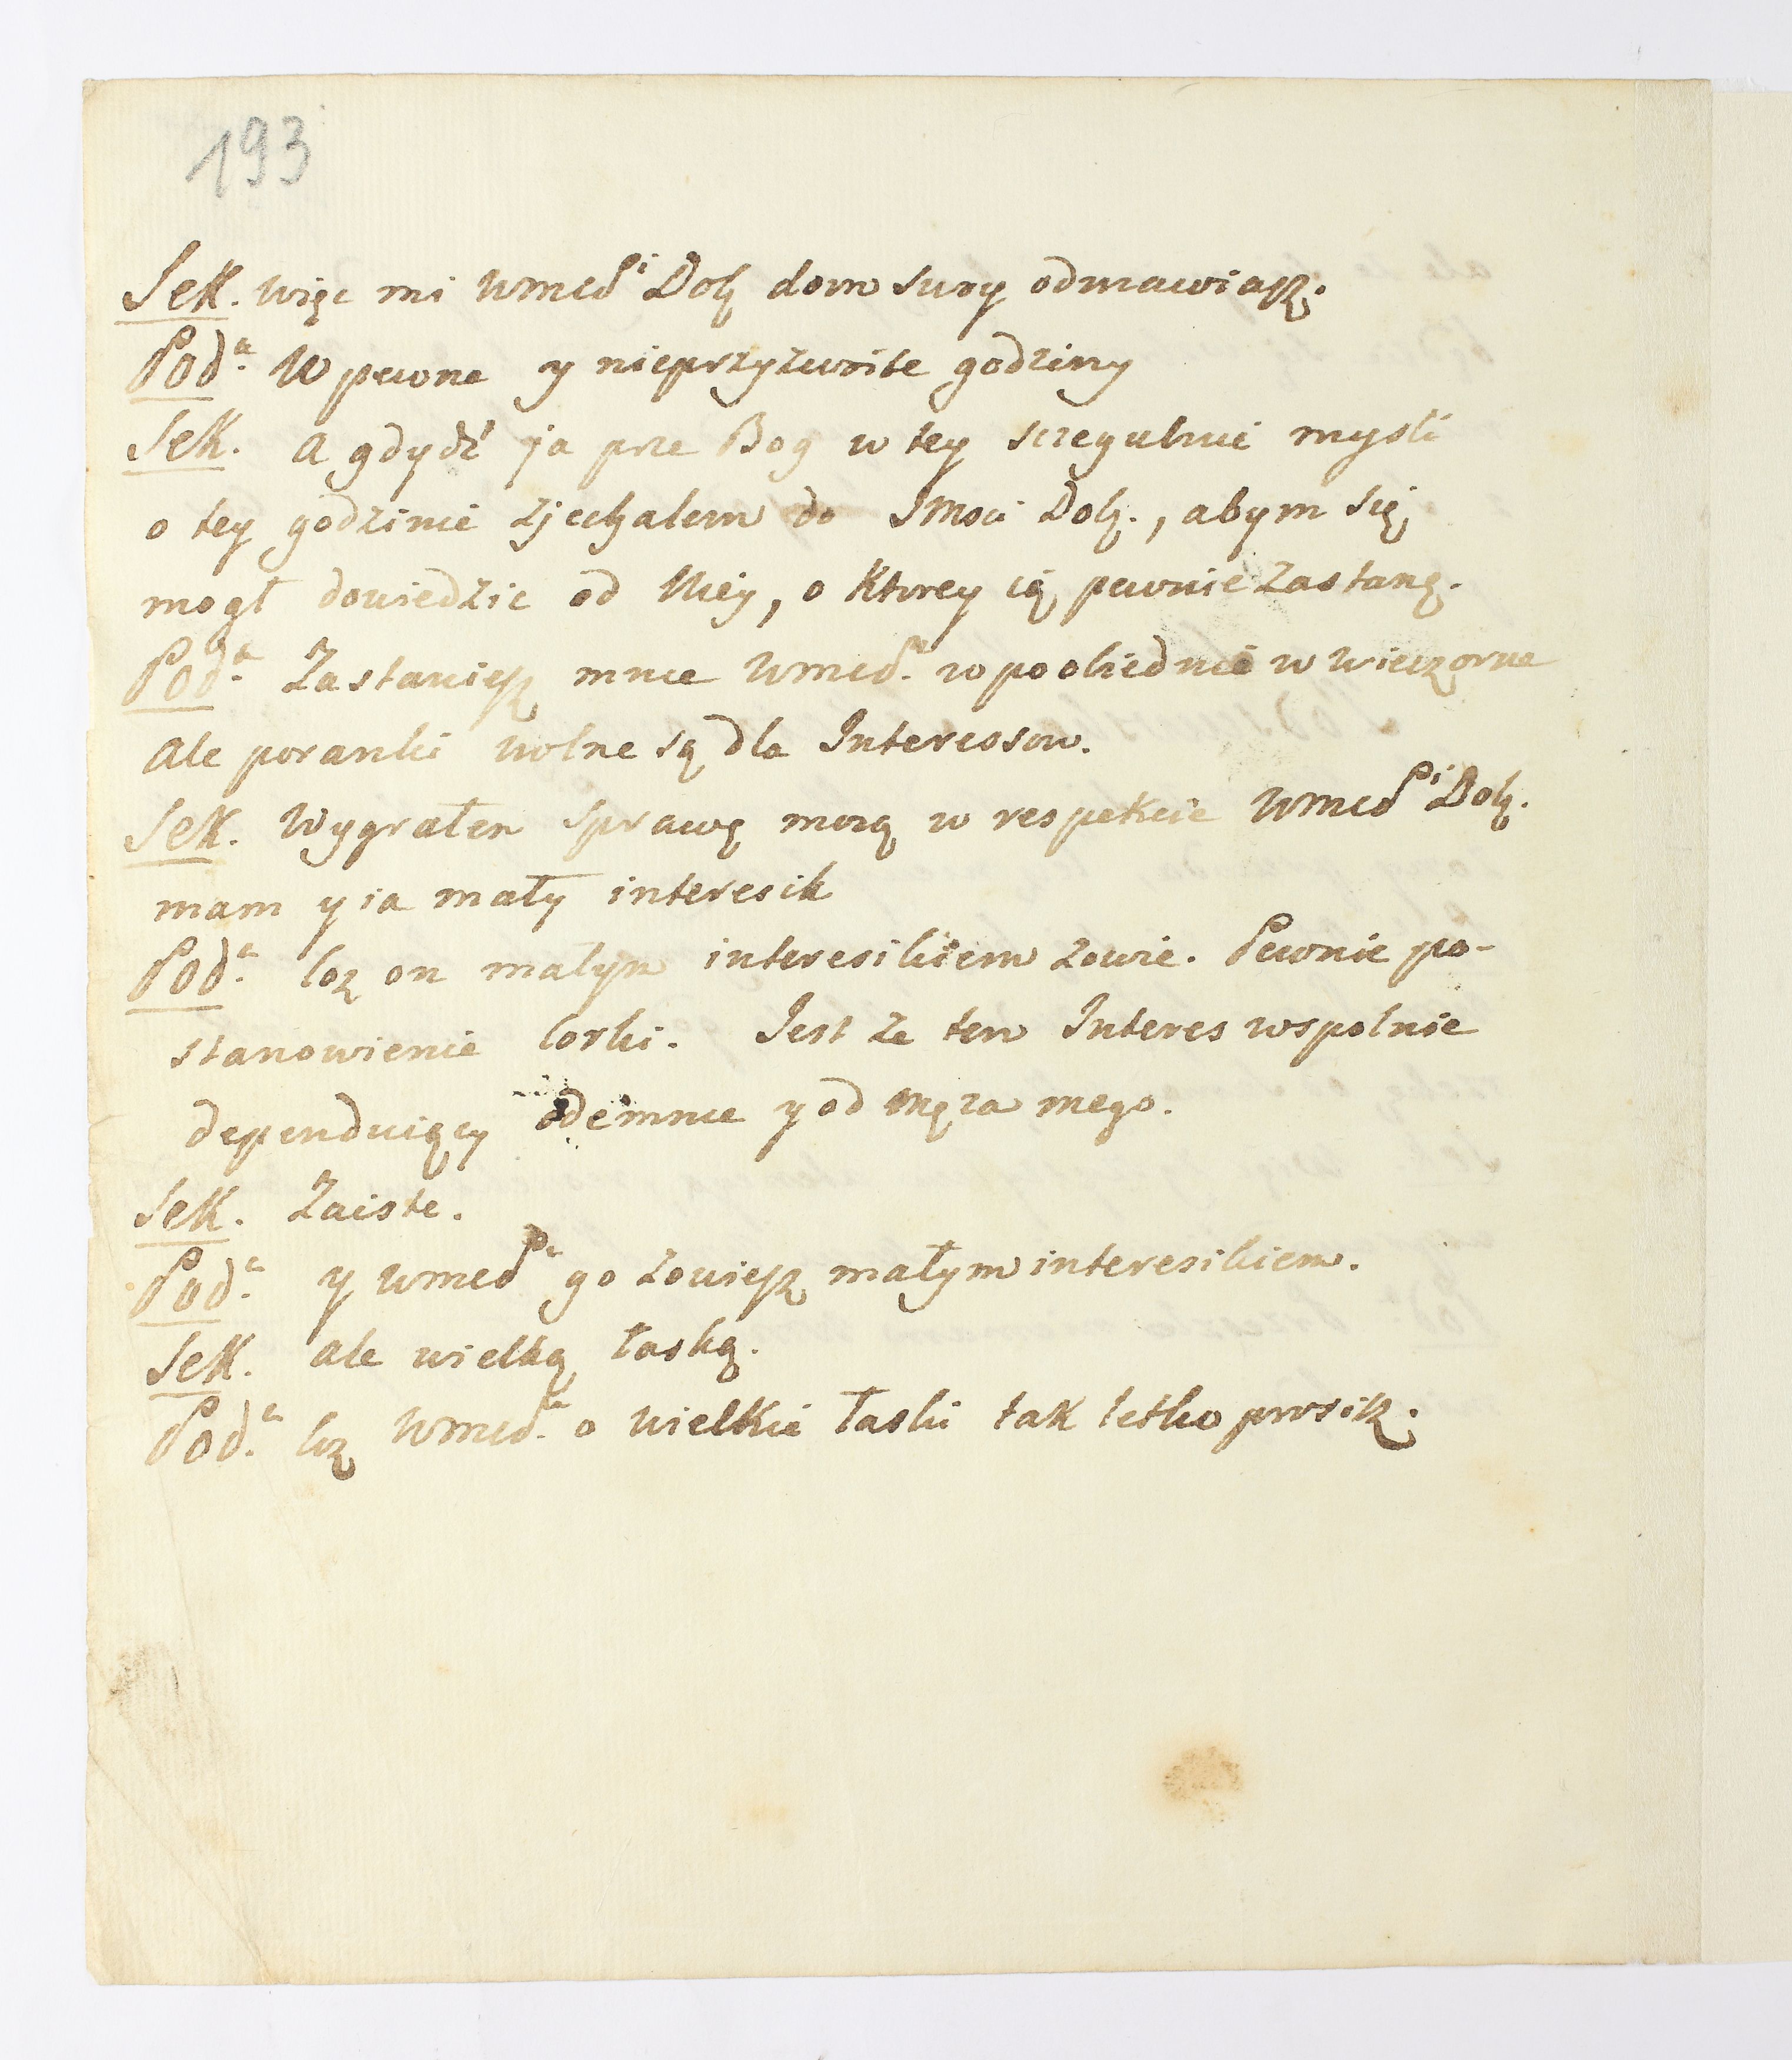 193
Sek. więc mi WmcPi Dob dom suoy odmawiasz.
Poda. W pewne y nieprzyzwoite godziny
Sek. a gdydź ja prze Bog w tey sczegulnei mysli
o tey godzinie zjechalem do JMoci Dob., abym się
mogł dowiedzic od Niey, o ktorey ią pewnie zastanę.
Poda. Zastaniesz mnie Wmcpa. w poobiednie w wieczorne
ale poranki wolne są dla Interessow.
Sek. Wygrałem sprawę moią w respekcie WmcPi Dob.
mam y ia mały interesik
Poda. Coz on małym interesikiem zowie. Pewnie po-
stanowienie Corki. Jest ze ten Interes wspolnie
dependuiący odemnie y od męza mego.
Sek. Zaiste.
Poda. y WmcPa go zowiesz małym interesikiem.
Sek. ale wielką łaską.
Poda. Czy Wmcpa. o wielkie łaski tak letko prosisz.